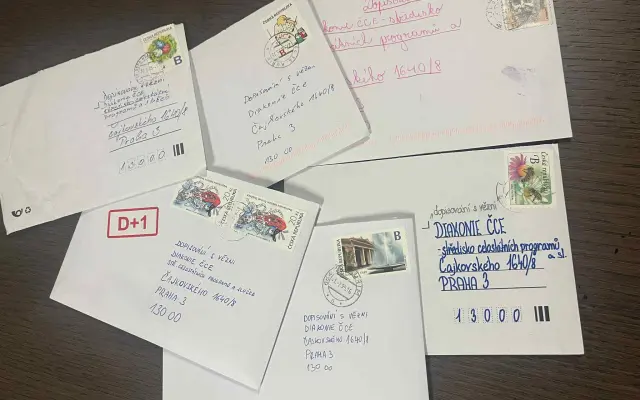 B
DOPISOVÁNÍ S VĚZNI
DIAKONIE ČCE
ČAJKOVSKÉHO 1640/8
PRAHA 3
13000
ČESKÁ REPUBLIKA
B
DOPISOVÁNÍ S VĚZNI
DIAKONIE ČCE
ČAJKOVSKÉHO 1640/8
PRAHA 3
130 00
Dopisování
konie ČCE - středisko
programů a
kého 1640/8
D+1
ČESKÁ REPUBLIKA
ČESKÁ REPUBLIKA
DOPISOVÁNÍ S VĚZNI
DIAKONIE ČCE
ČAJKOVSKÉHO 1640/8
PRAHA 3
130 00
ČESKÁ REPUBLIKA
B
DOPISOVÁNÍ S VĚZNI
DIAKONIE ČCE
ČAJKOVSKÉHO 1640/8
PRAHA 3
130 00
B
„dopisování s vězni“
DIAKONIE ČCE
středisko celostátních programů
a sl.
Čajkovského 1640/8
PRAHA 3
13000